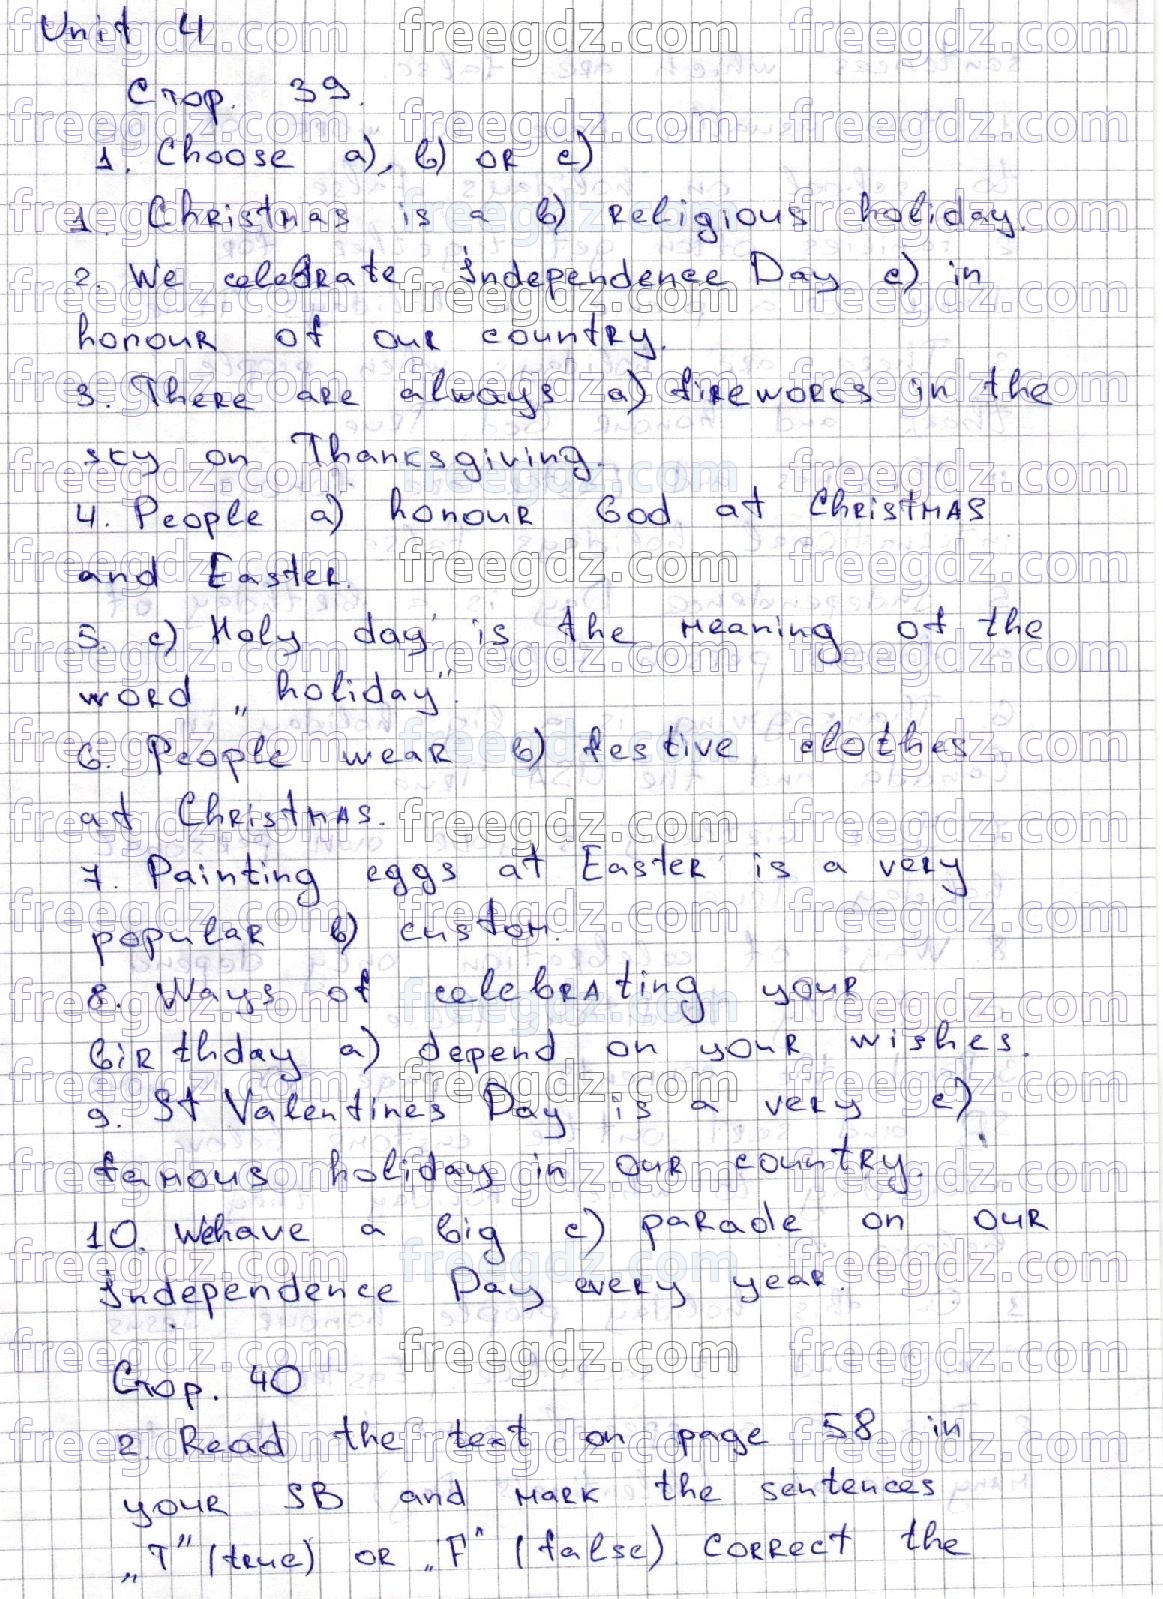 Unit 4
Стор. 39.
1. Choose a), b) or c)
1. Christmas is a b) religious holiday.
2. We celebrate Independence Day c) in
honour of our country.
3. There are always a) fireworks in the
sky on Thanksgiving.
4. People a) honour God at Christmas
and Easter.
5. c) Holy day is the meaning of the
word „holiday".
6. People wear b) festive clothes
at Christmas.
7. Painting eggs at Easter is a very
popular b) custom.
8. Ways of celebrating your
birthday a) depend on your wishes.
9. St Valentines Day is a very c)
famous holiday in our country.
10. We have a big c) parade on our
Independence Day every year.
Стор. 40
2. Read the text on page 58 in
your SB and mark the sentences
„T" (true) or „F" (false) correct the
freegdz.com